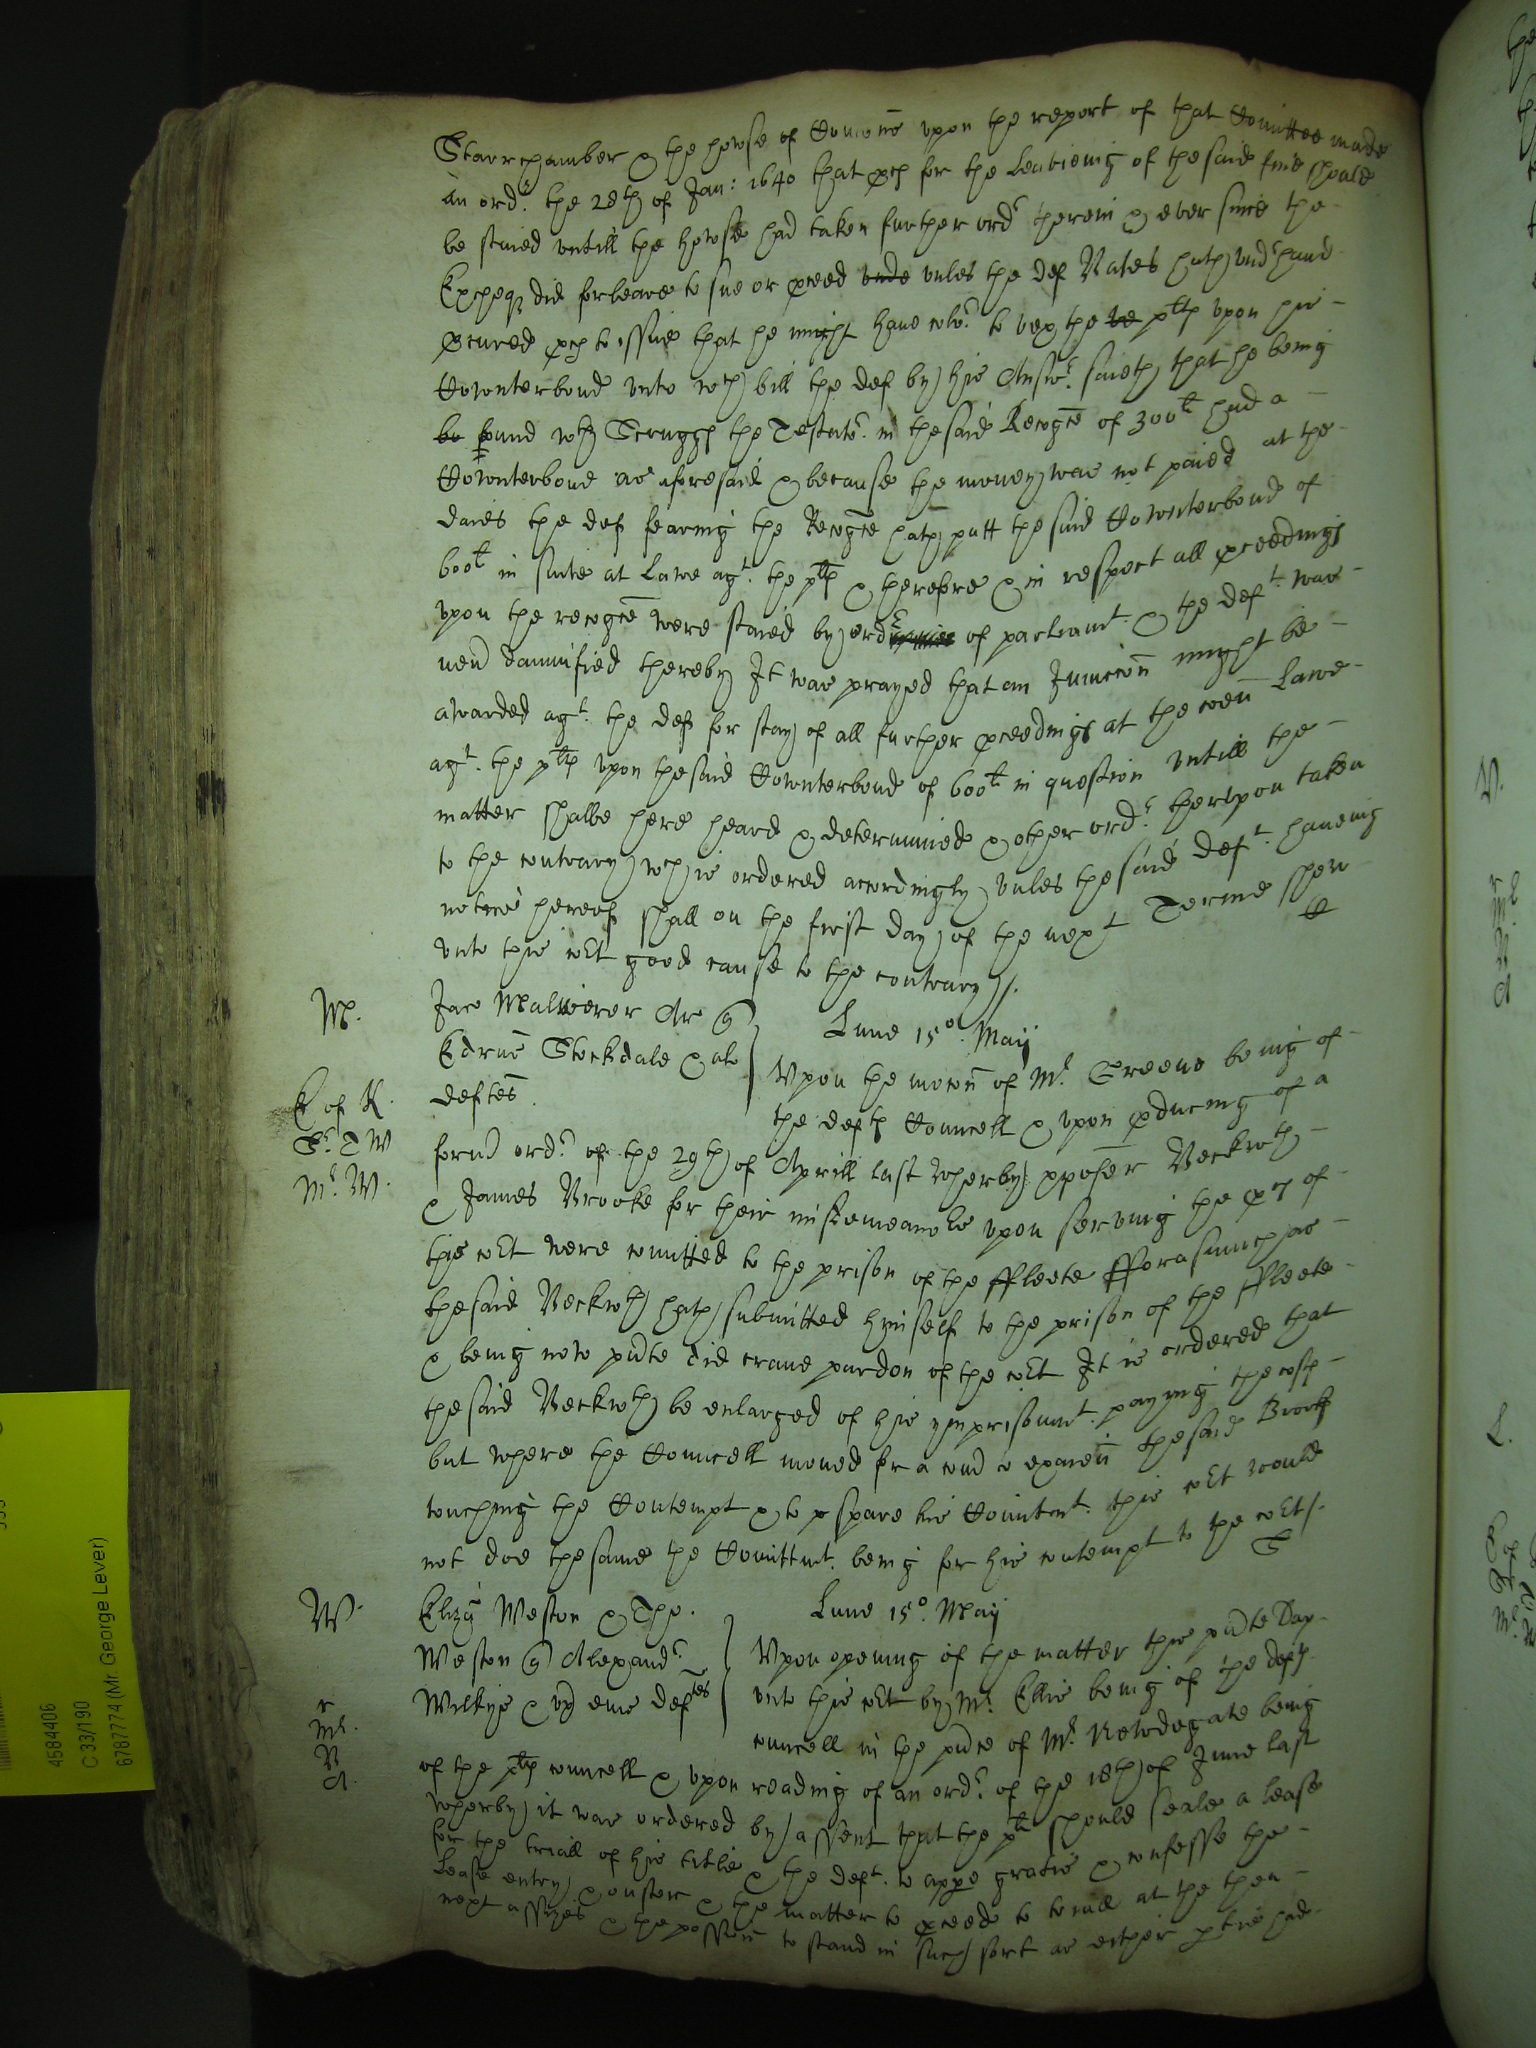 Starrchamber & the howse of Comons upon the report of that Comittee made
an ordr. the 28th of Jan: 1640 that pces for the Leavieing of the said fine should
be staied untill the howse had taken further ordr therein & ever since the
Excheqr did forbeare to sue or pceed unde unles the def Nates hath undrhand
pcured pces to issue that he might have color. to vex the be plt upon his
Counterbond unto wch bill the def by his Answr. saieth that he being
be bound wth Scruggs the Testator. in the said Recogce of 300li had a
Counterbond as aforesaid & because the money was not paied at the
daies the def fearing the Recogce hath putt the said Counterbond of
600li in suite at Lawe agt. the plt & therefore & in respect all pceedings
upon the recogce were staied by ordr of parliamt. & the deft. was
nevr damnified thereby It was prayed that an Iniuccon might be
awarded agt. the def for stay of all further pceedings at the coen Lawe
agt. the plt upon the said Counterbond of 600li in question untill the
matter shalbe here heard & determined & other ordr. therupon taken
to the contrary wch is ordered accordingly unles the said deft. haveing
notice hereof shall on the first day of the next Terme shew
unto this cort good cause to the contrary /.
M.
Jac Maliverer Ar q
Edrus Stockdale & al
deftes.
Lune 15o. Maij
Upon the mocon of Mr. Greene being of
the defts Councell & upon pducing of a
E of K.
Sr. T W
Mr. W.
formr ordr. of the 29th of Aprill last wherby xpofer Beckwth
& James Brooke for their misdemeanors upon serving the pces of
this cort were comitted to the prison of the ffleete fforasmuch as
the said Beckwth hath submitted himself to the prison of the ffleete
& being now pnte did crave pardon of the cort It is ordered that
the said Beckwth be enlarged of his ymprisonmt. paying the costs
but where the Councell moved for a comr to examen the said Brooke
touching the Contempt & to spare his Comitmt. this cort would
not doe the same the Comittmt. being for his contempt to the cort /.
W.
Eliz Weston & Tho.
Weston q Alexandr.
Wilkys & ux eius deftes
Lune 15o. Maij
Upon opening of the matter this pnte day
unto this cort by Mr. Ellis being of the defts
councell in the pnce of Mr. Newdegate being
r
Mr.
N
A.
of the plts councell & upon reading of an ordr. of the 18th of June last
wherby it was ordered by assent that the plt should seale a lease
for the triall of his title & the deft. to appe gratis & confesse the
Lease entry & ouster & the matter to pceede to triall at the then
next assizes & the possion to stand in such sort as either ptie had
4584406
C 33/190
6787774 (Mr. George Lever)